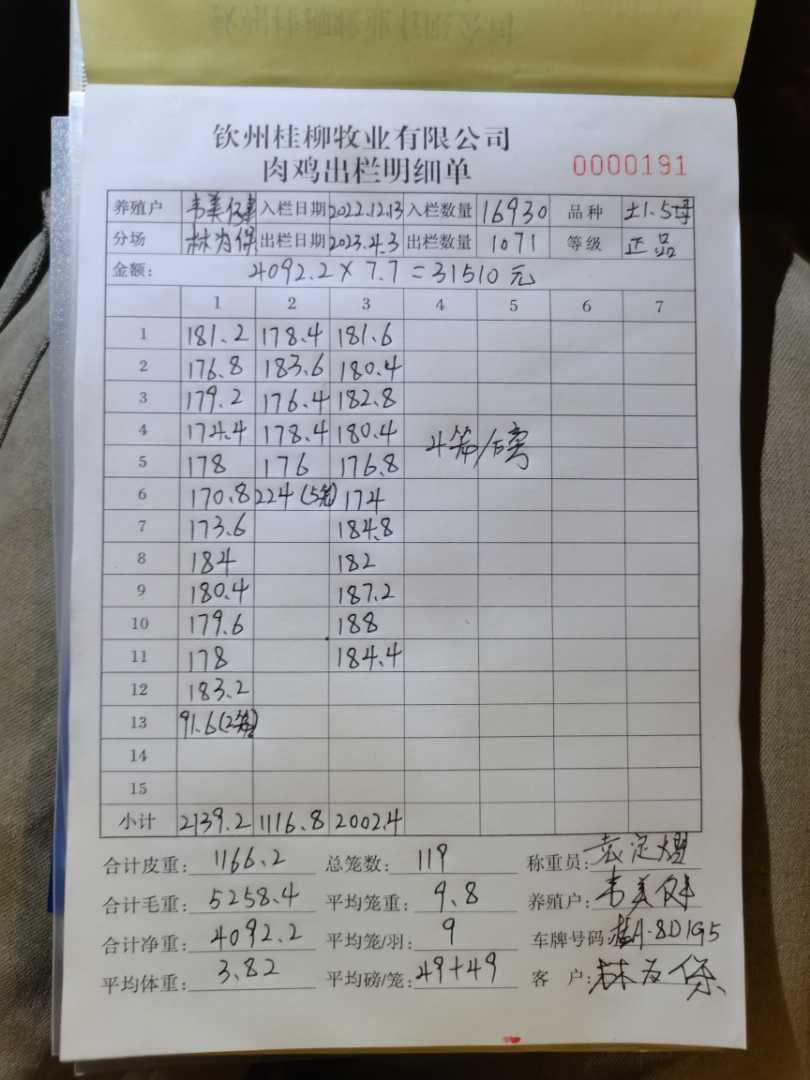 钦州桂柳牧业有限公司
肉鸡出栏明细单 0000191
养殖户 韦美 入栏日期 2022.12.13 入栏数量 16930 品种 土1.5母
分场 林为保 出栏日期 2023.4.3 出栏数量 1071 等级 正品
金额: 4092.2×7.7=31510元
1 2 3 4 5 6 7
1 181.2 178.4 181.6
2 176.8 183.6 180.4
3 179.2 176.4 182.8
4 174.4 178.4 180.4 4笼/磅
5 178 176 176.8
6 170.8 224(5笼) 174
7 173.6 184.8
8 184 182
9 180.4 187.2
10 179.6 188
11 178 184.4
12 183.2
13 91.6(2笼)
14
15
小计 2139.2 1116.8 2002.4
合计皮重: 1166.2 总笼数: 119 称重员: 袁定
合计毛重: 5258.4 平均笼重: 9.8 养殖户: 韦美
合计净重: 4092.2 平均笼/羽: 9 车牌号码: 桂A·8D1G5
平均体重: 3.82 平均磅/笼: 49+49 客 户: 林为保